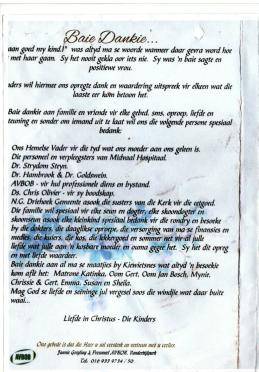 Baie Dankie...
aan goed my kind!" was altyd ma se woorde wanneer daar gevra word hoe
met haar gaan. Sy het nooit gekla oor iets nie. Sy was 'n baie sagte en
positiewe vrou.
ders wil hiermee ons opregte dank en waardering uitspreek vir elkeen wat die
laaste eer kom betoon het.
Baie dankie aan familie en vriende vir elke gebed, sms, oproep, liefde en
teuning en sonder om iemand uit te laat wil ons die volgende persone spesiaal
bedank:
Ons Hemelse Vader vir die tyd wat ons moeder aan ons geleen is.
Die personeel en verpleegsters van Midvaal Hospitaal.
Dr. Strydom Steyn.
Dr. Hambrook & Dr. Goldswein.
AVBOB - vir hul professionele diens en bystand.
Ds. Chris Olivier - vir sy boodskap.
N.G. Driehoek Gemeente asook die susters van die Kerk vir die uitgord.
Die familie wil spesiaal vir elke seun en dogter, elke skoondogter en
skoonseun asook elke kleinkind spesiaal bedank vir die rondry en besoeke
by die dokters, die daaglikse oproepe, die versorging van ma se finansies en
medies, die kuiers, die kos, die lekkergoed en sommer net vir al julle
liefde wat julle aan 'n kosbare moeder en ouma gegee het. Sy het dit opreg
en met liefde waardeer.
Baie dankie aan al ma se maatjies by Kiewietsnes wat altyd 'n besoekie
kom aflê het: Matrone Katinka, Oom Gert, Oom Jan Bosch, Mynie,
Chrissie & Gert, Emma, Susan en Sheila.
Mag God se liefde en seëninge jul vergesel soos die windjie wat daar buite
waai...
Liefde in Christus - Die Kinders
Ons gebede is dat die Heer u sal versterk en vertroos met u verlies.
AVBOB
Jannie Greyling & Personeel AVBOB, Vanderbijlpark
Tel. 016 933 9734 / 50